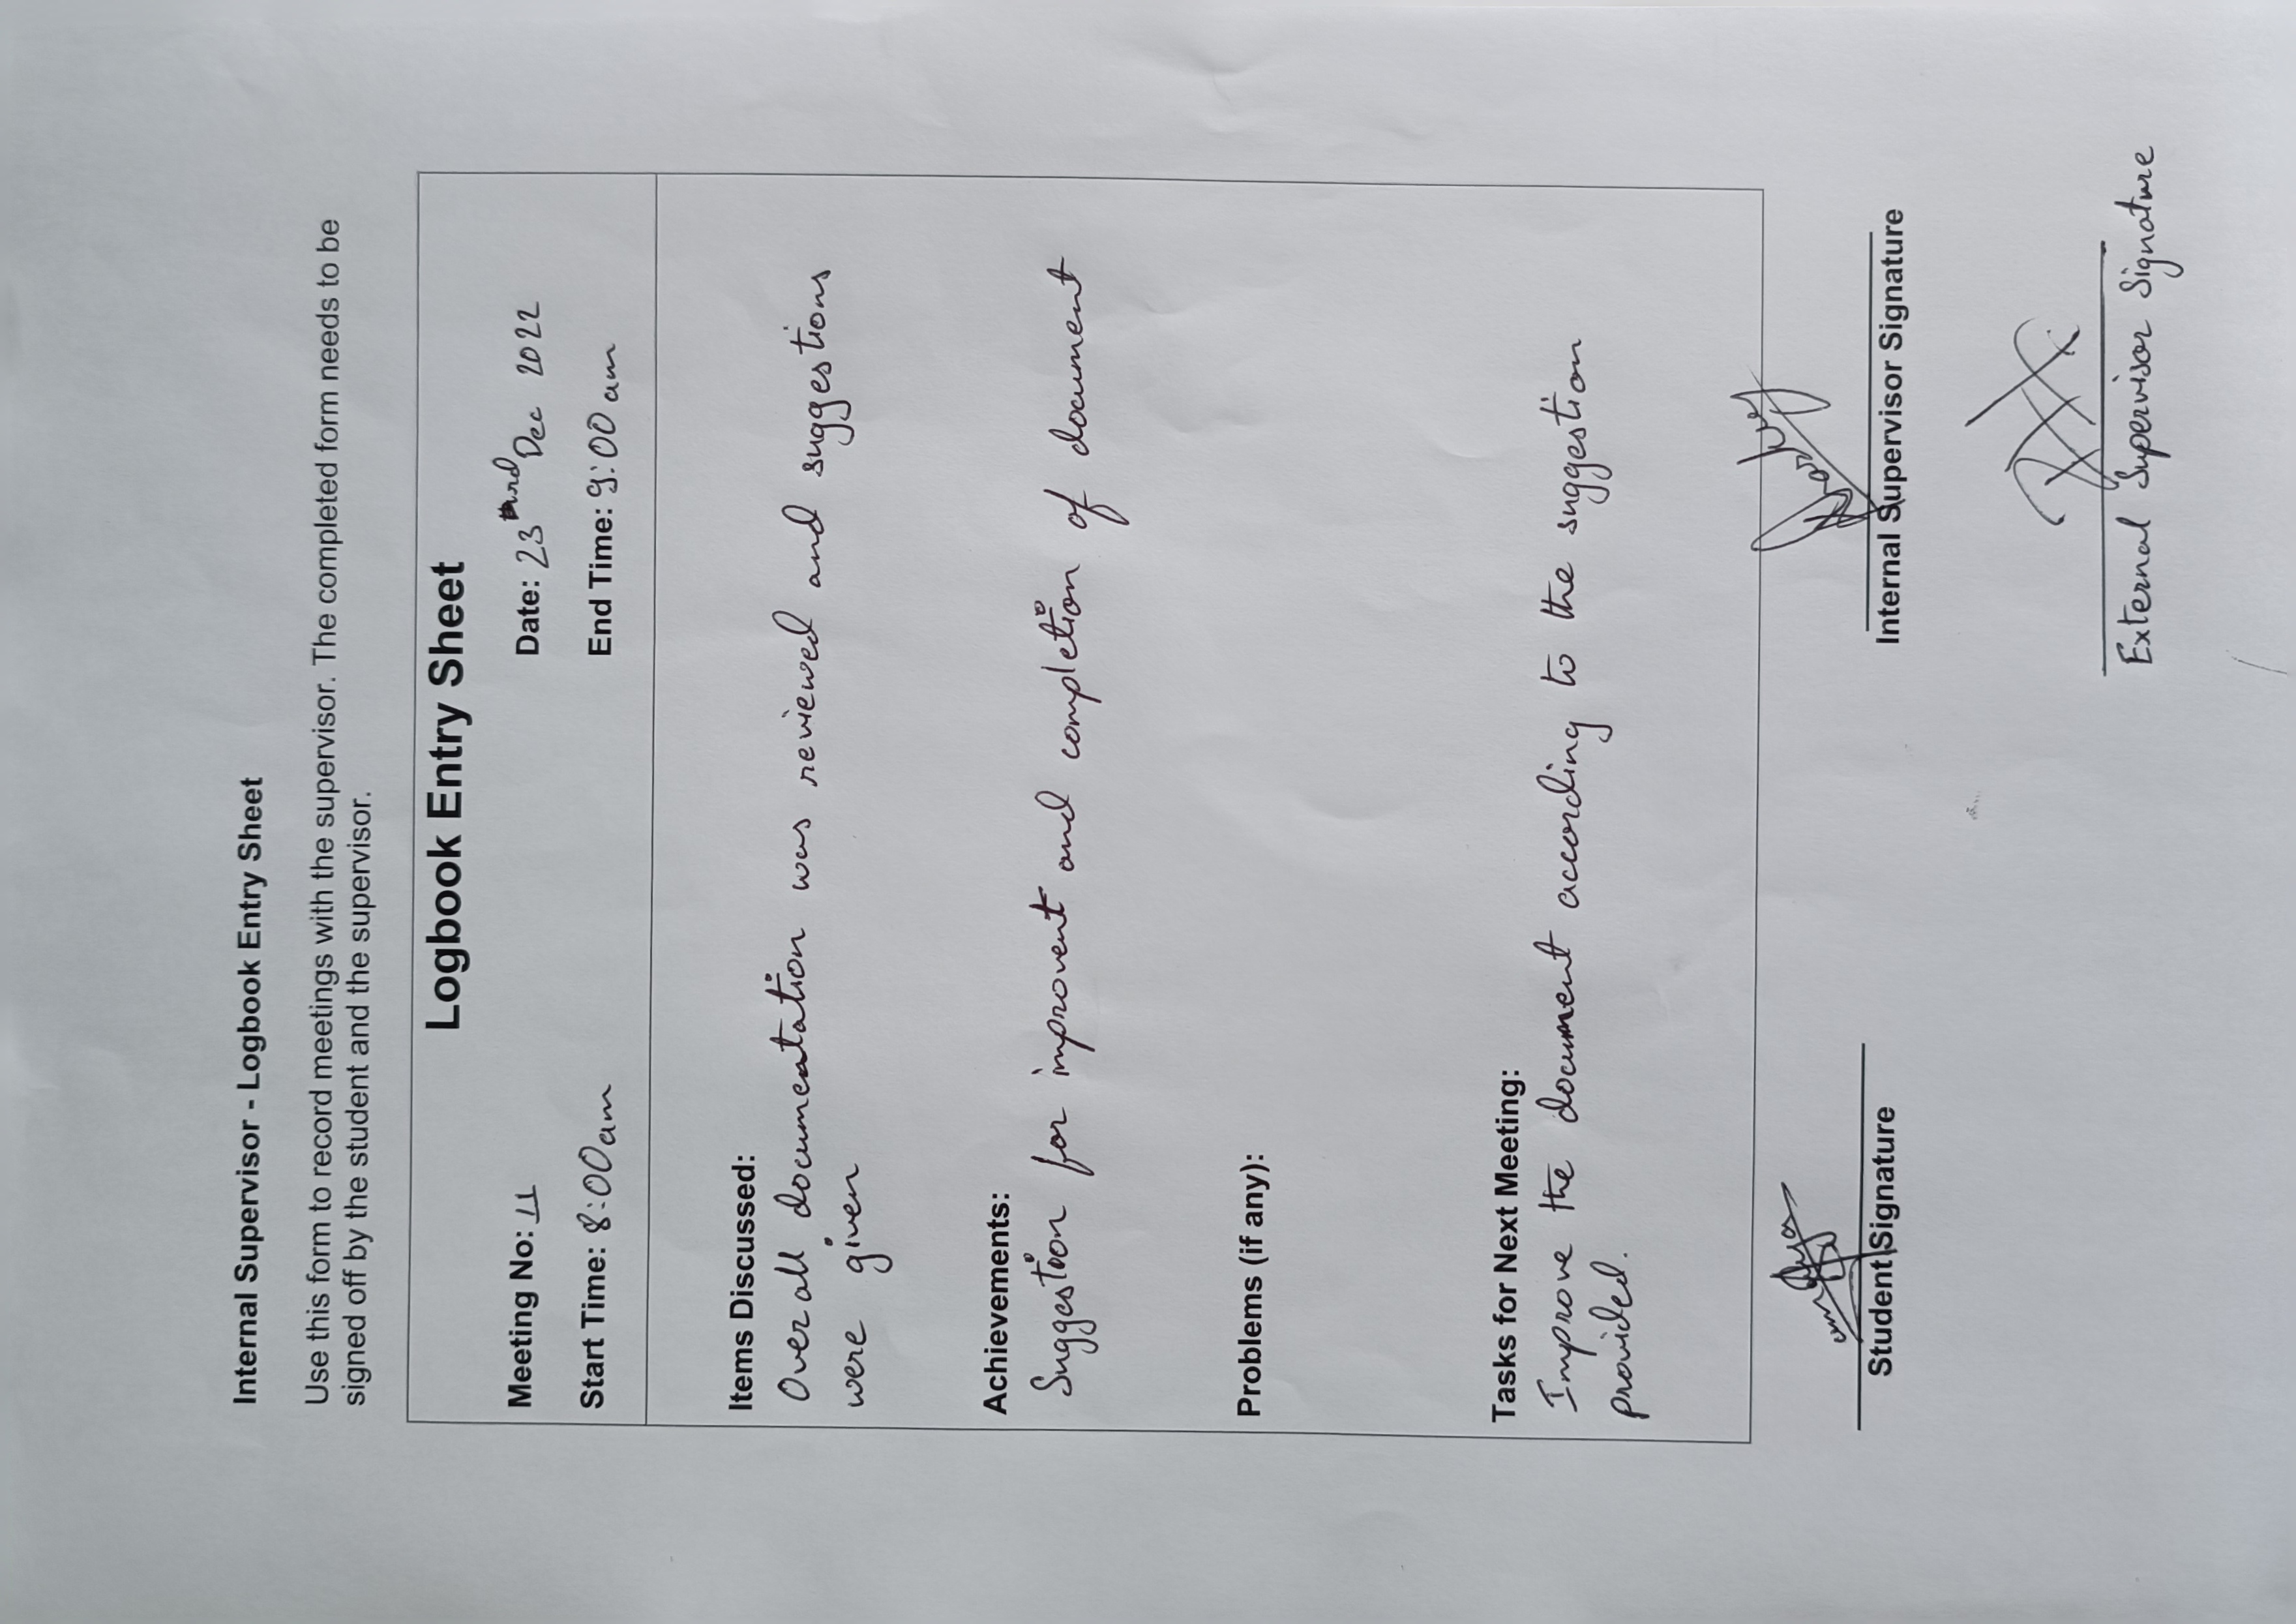 Internal Supervisor - Logbook Entry Sheet
Use this form to record meetings with the supervisor. The completed form needs to be
signed off by the student and the supervisor.
Logbook Entry Sheet
Meeting No: 11 Date: 23rd Dec 2022
Start Time: 8:00am End Time: 9:00 am
Items Discussed:
Over all documentation was reviewed and suggestions
were given
Achievements:
Suggestion for improvent and completion of document
Problems (if any):
Tasks for Next Meeting:
Improve the document according to the suggestion
provided.
Student Signature
Internal Supervisor Signature
External Supervisor Signature